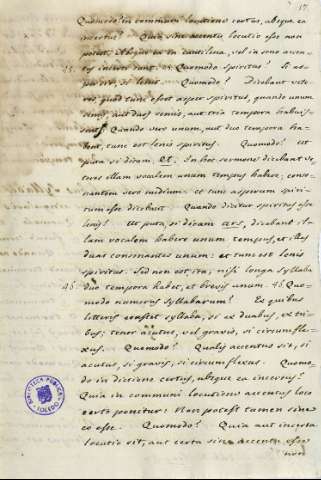 17.
Quomodo in communi locutione certus, absque ea
incertus? Quia sine accentu locutio esse non
potest. Absque ea in cantilena, vel in sono accen-
tus incerti sunt. 45. Quomodo spiritus? Si as-
per sit, si lenis. Quomodo? Dicebant vete-
res, quod tunc esset asper spiritus, quando unum
semis, aut duos semis, aut tria tempora habuis-
sent. Quando vero unum, aut duo tempora ha-
bent, tunc est lenis spiritus. Quomodo? Ut
puta si dicam et. In hoc sermone dicebant ve-
teres illam vocalem unum tempus habere, con-
sonantem vero medium: et tunc asperum spiri-
tum esse dicebant. Quando dicitur spiritus esse
lenis? Ut puta, si dicam ars, dicebant il-
lam vocalem habere unum tempus, et illas
duas consonantes unum: et tunc est lenis
spiritus. Sed non est ita, nisi longa syllaba
46. duo tempora habet, et brevis unum. 46. Quo-
modo numerus syllabarum? Ex quibus
litteris constet syllaba, si ex duabus, ex tri-
bus; tenor acutus, vel gravis, si circumfle-
xus. Quomodo? Qualis accentus sit, si
acutus, si gravis, si circumflexus. Quomo-
do in dictione certus, absque ea incertus?
Quia in communi locutione accentus loco
certo ponitur: Non potest tamen sine
eo esse. Quomodo? Quia aut incerta
locutio sit, aut certa sine accentu esse
non
BIBLIOTECA PUBLICA
TOLEDO